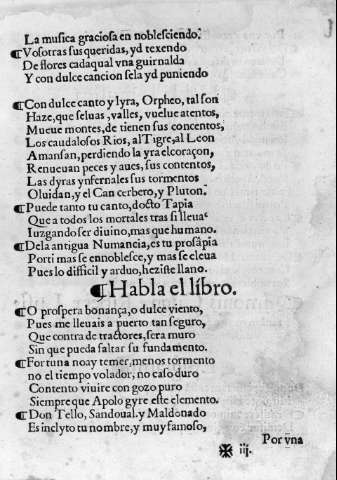 La musica graciosa en noblesciendo.
¶Vosotras sus queridas, yd texendo
De flores cada qual vna guirnalda
Y con dulce cancion sela yd puniendo
¶Con dulce canto y lyra, Orpheo, tal son
Haze, que seluas, valles, vuelue atentos,
Mueue montes, de tienen sus concentos,
Los caudalosos Rios, al Tigre, al Leon
Amansan, perdiendo la yra el coraçon,
Renueuan peces y aues, sus contentos,
Las dyras ynfernales sus tormentos
Oluidan, y el Can cerbero, y Pluton.
¶Puede tanto tu canto, docto Tapia
Que a todos los mortales tras si lleua
Iuzgando ser diuino, mas que humano.
¶Dela antigua Numancia, es tu prosapia
Porti mas se ennoblesce, y mas se eleua
Pues lo difficil y arduo, heziste llano.
¶Habla el libro.
¶O prospera bonança, o dulce viento,
Pues me lleuais a puerto tan seguro,
Que contra de tractores, sera muro
Sin que pueda faltar su fundamento.
¶Fortuna no ay temer, menos tormento
no el tiempo volador, no caso duro
Contento viuire con gozo puro
Siempre que Apolo gyre este elemento.
¶Don Tello, Sandoual. y Maldonado
Es inclyto tu nombre, y muy famoso,
✠ iij. Por vna